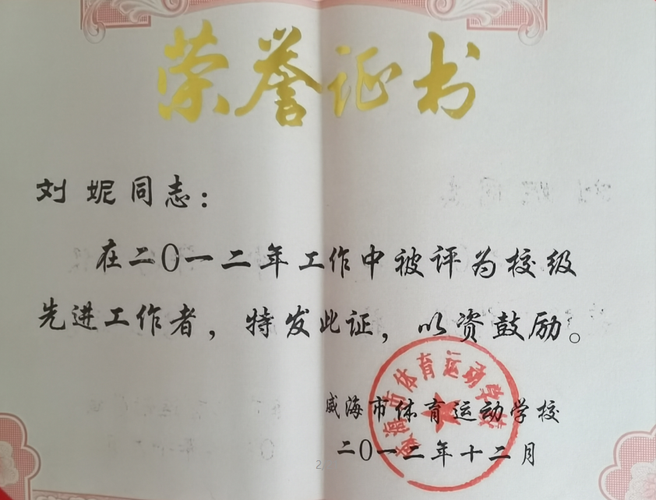 荣誉证书
刘妮同志：
在二〇一二年工作中被评为校级
先进工作者，特发此证，以资鼓励。
威海市体育运动学校
二〇一二年十二月
威海市体育运动学校
2